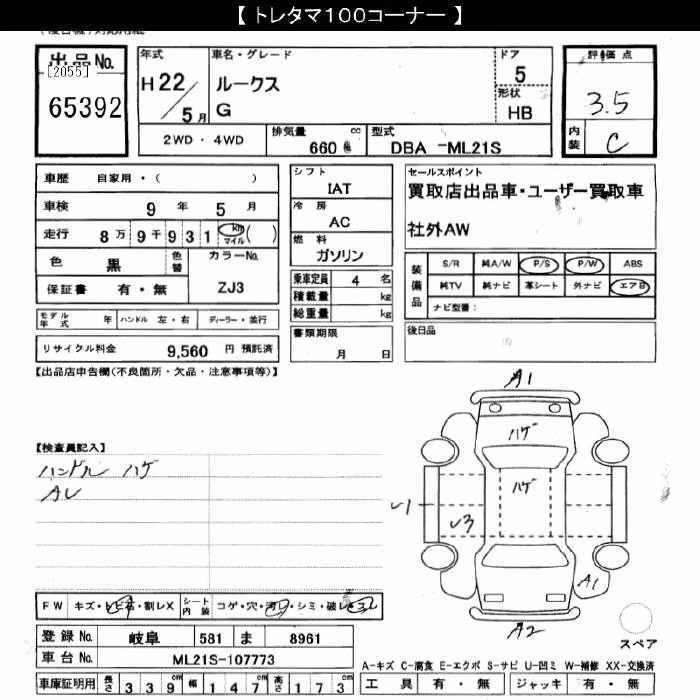 【 トレタマ100コーナー 】
出品No. [2055] 65392
年式 H22/5月
車名・グレード ルークス G
ドア 5
形状 HB
評価点 3.5
内装 C
2WD ・ 4WD
排気量 660 cc
型式 DBA -ML21S
車歴 自家用・( )
車検 9年 5月
走行 8万9千931 km マイル ( )
色 黒 色替
カラーNo. ZJ3
保証書 有・無
モデル年式 年 ハンドル 左・右 ディーラー・並行
リサイクル料金 9,560 円 預託済
シフト IAT
冷房 AC
燃料 ガソリン
乗車定員 4 名
積載量 kg
総重量 kg
書類期限 月 日
セールスポイント
買取店出品車・ユーザー買取車
社外AW
装備品 S/R 純A/W P/S P/W ABS
純TV 純ナビ 革シート 外ナビ エアB
ナビ型番:
後日品
【出品店申告欄(不良箇所・欠品・注意事項等)】
【検査員記入】
ハンドル ハゲ
AU
A1
ハゲ
ハゲ
U1
U3
A1
A2
スペア
FW キズ・トビ石・割レX
シート内装 コゲ・穴・汚レ・シミ・破レ
登録No. 岐阜 581 ま 8961
車台No. ML21S-107773
車庫証明用 長さ 339cm 幅 147cm 高さ 173cm
A-キズ C-腐食 E-エクボ S-サビ U-凹ミ W-補修 XX-交換済
工具 有・無 ジャッキ 有・無